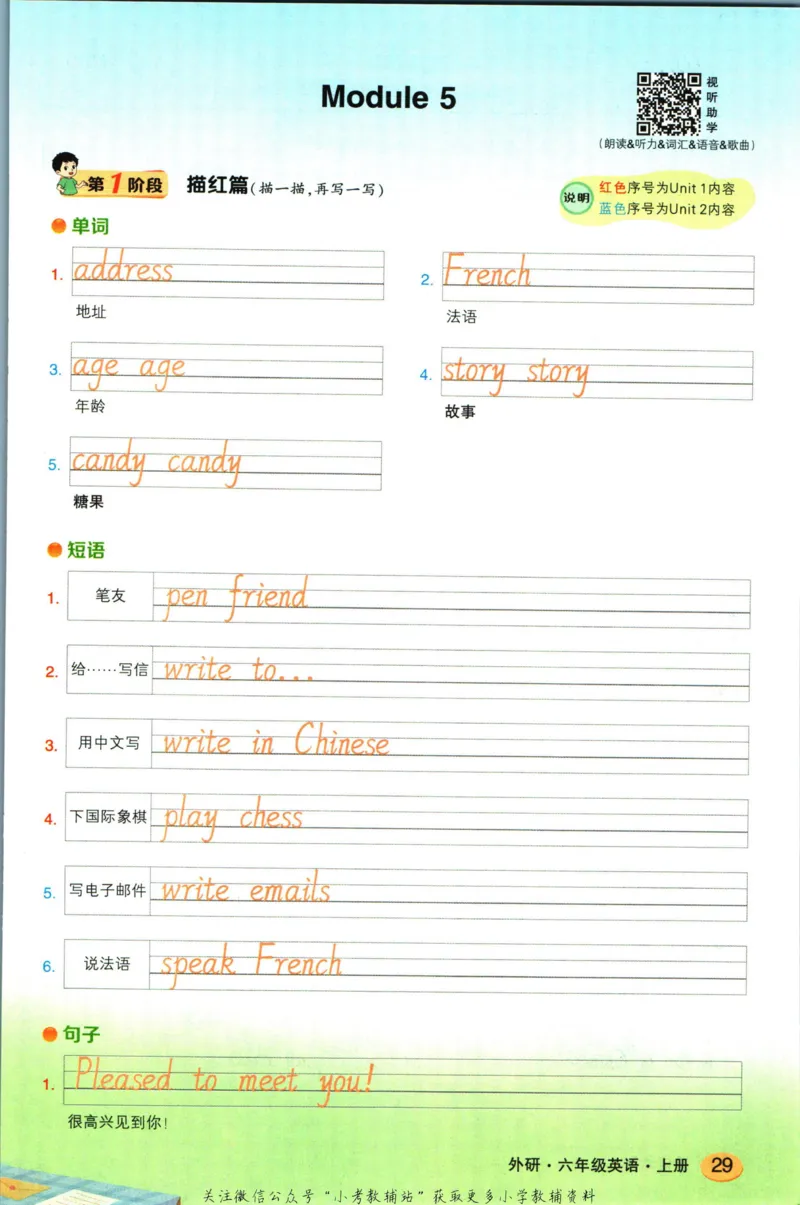 Module 5
视听助学
(朗读&听力&词汇&语音&歌曲)
第1阶段 描红篇(描一描,再写一写)
说明 红色序号为Unit 1内容
蓝色序号为Unit 2内容
单词
1. address
地址
2. French
法语
3. age age
年龄
4. story story
故事
5. candy candy
糖果
短语
1. 笔友 pen friend
2. 给……写信 write to...
3. 用中文写 write in Chinese
4. 下国际象棋 play chess
5. 写电子邮件 write emails
6. 说法语 speak French
句子
1. Pleased to meet you!
很高兴见到你!
外研·六年级英语·上册 29
关注微信公众号“小考教辅站”获取更多小学教辅资料